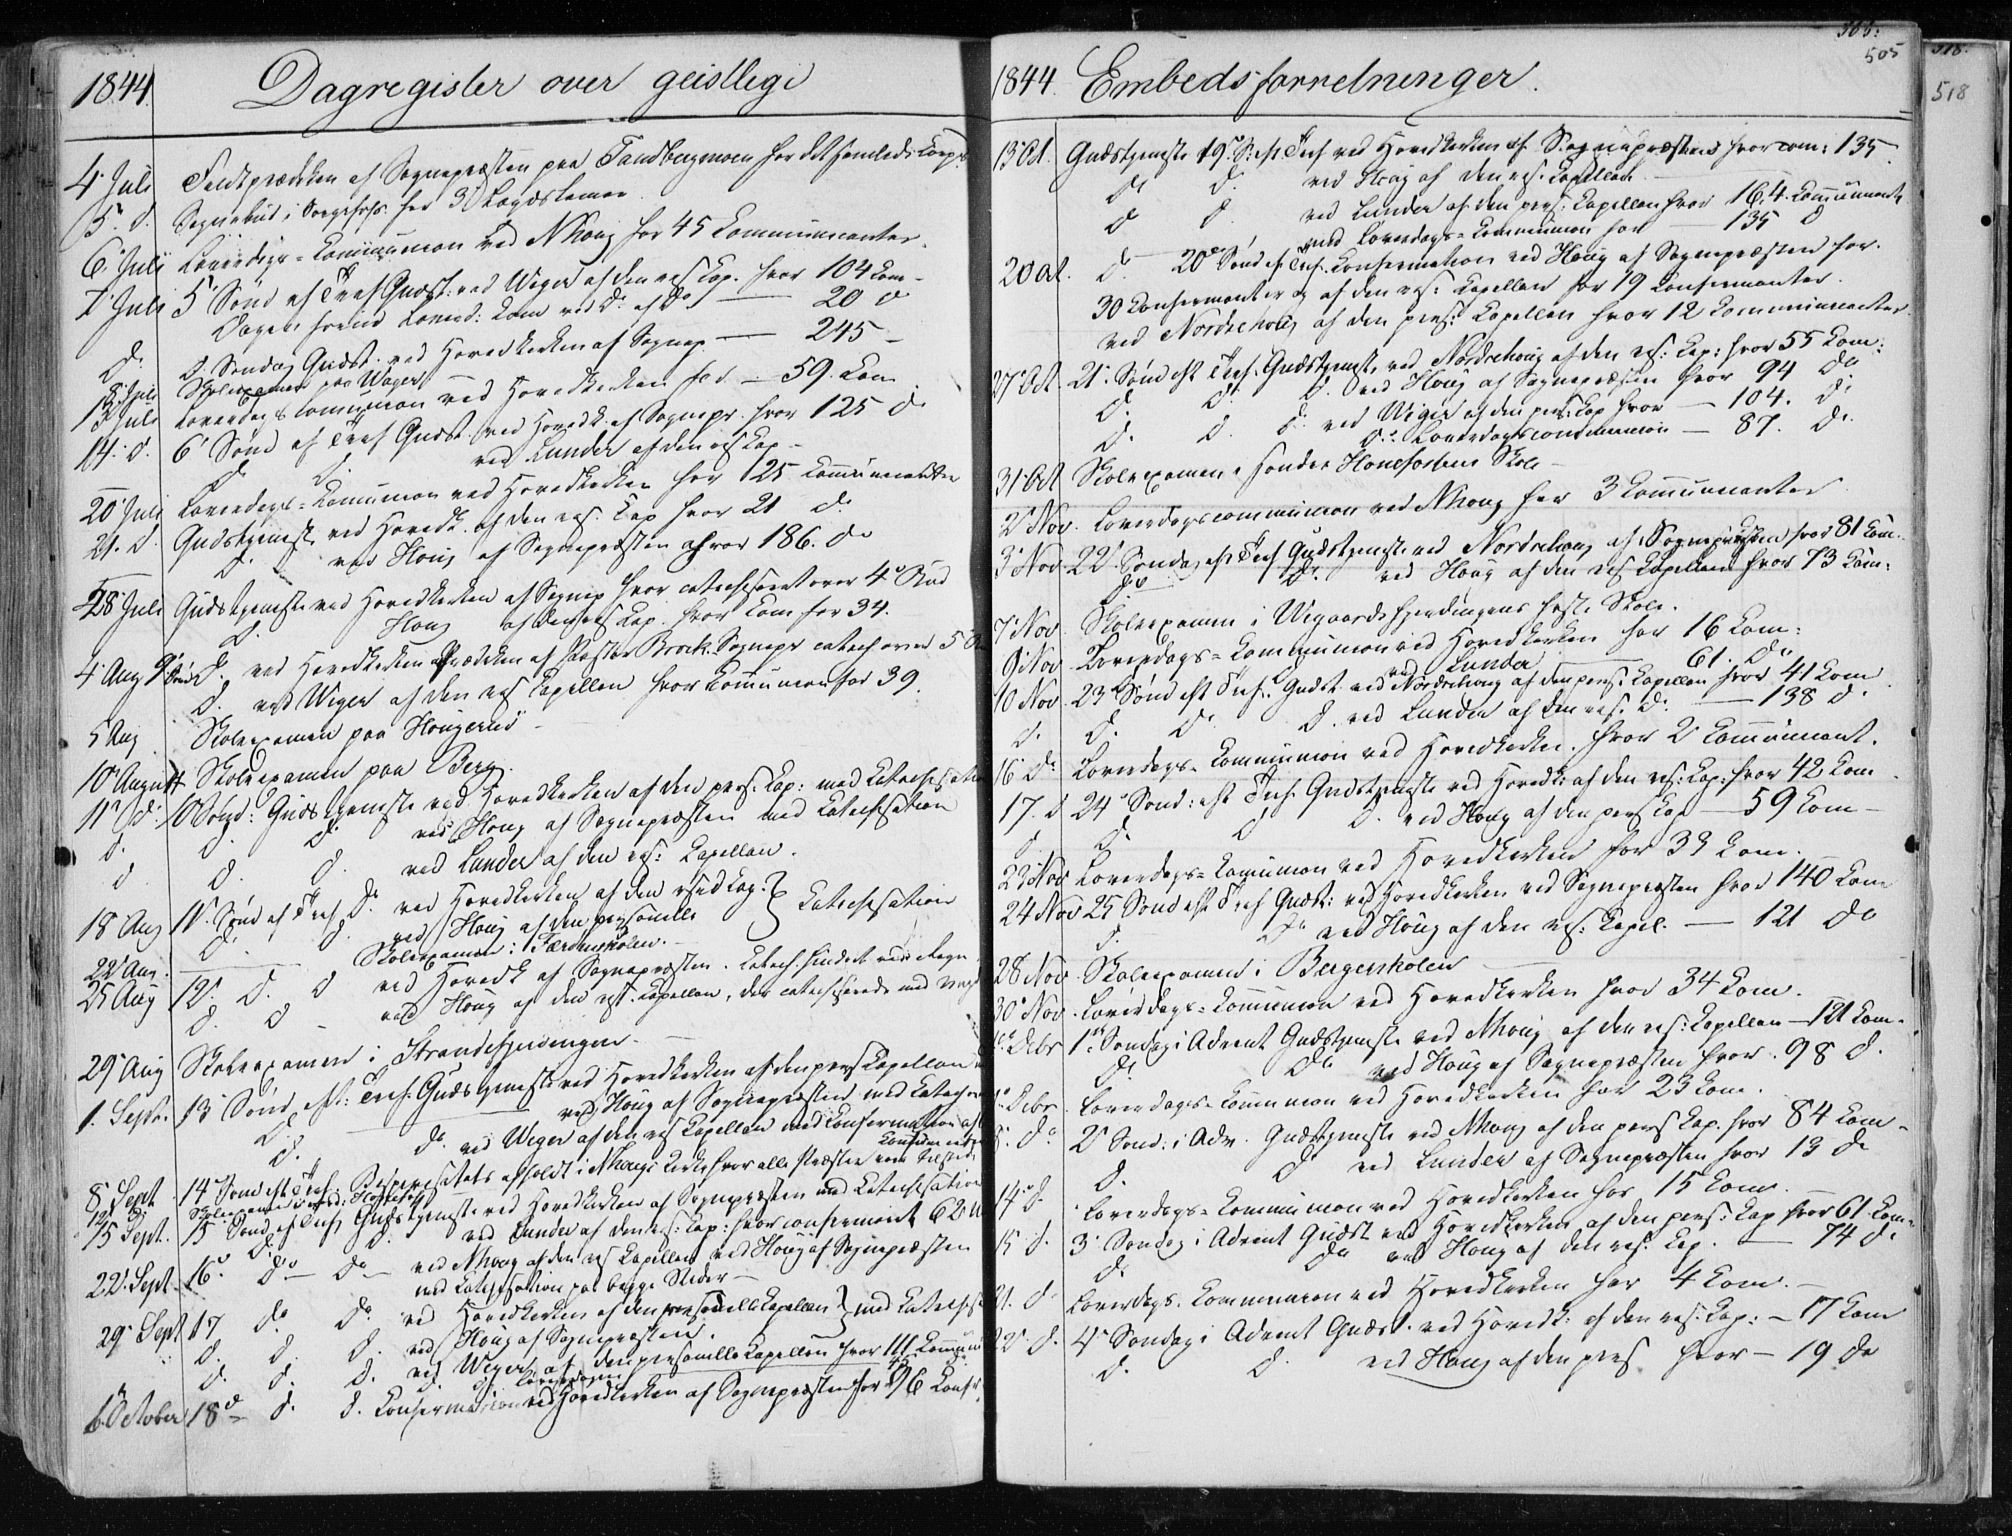 1844. Dagregister over geistlige
4. Juli Feldtprædiken af Sognepræsten paa Tandbergmoen for det samlede Corps
5. d. Sognebud i for 3 Lægdslemer
6. Juli Løverdags-Communion ved Nhoug for 45 Communicanter.
7. Juli 5. Sønd ef Tref Gudst. ved Viger af den res Cap. hvor 104 Kom-
Dagen forud Løverd: Kom ved do. af do — 20 do
do. d. Søndag Gudst. ved Hovedkirken af Sognep. — 245 -
Skoleexamen paa Wager
13 Juli Løverdagscommunion ved Hovedkirken for — 59. Kom
14. d. 6 Sønd ef Tref Gudst. ved Hovedk. af Sognepr. hvor 125 do
d. d. ved Lunder af den res Cap -
20 Juli Løverdags-Communion ved Hovedkirken for 125 Communicanter
21. d. Gudstjeneste ved Hovedk. af den res. Cap hvor 21 do
d. ved Houg af Sognepræsten hvor 186. do
28 Juli Gudstjeneste ved Hovedkirken af Sognep hvor catechiseret over 4de Bud
d. Houg af den res Cap. hvor Kom for 34.
4 Aug 9 Sønd d. ved Hovedkirken Prædiken af Pastor Brock. Sognepr catech over 5
d. ved Viger af den res Capellan hvor Communion for 39
5 Aug Skoleexamen paa Hougerud -
10 August Skoleexamen paa Berg.
11. d. 10 Sønd: Gudstjeneste ved Hovedkirken af den pers. Cap: med Catechisation
d. d. d. ved Houg af Sognepræsten med Catechisation
d d. d. ved Lunder af den res: Capellan.
18 Aug 11. Sønd ef Tref do. ved Hovedkirken af den resid Cap. } Catechisation
d. d. ved Houg af den personelle
22 Aug. Skoleexamen i Færdenskolen.
25 Aug 12. d. d ved Hovedk af Sognepræsten. Catech. hindret ved Regn
d. d - ved Houg af den res. Capellan, der catechiserede med
29 Aug Skoleexamen i Strandefjerdingen -
1. Septr. 13 Sønd eft: Tref. Gudstjeneste ved Hovedkirken af den pers Capellan
d. ved Houg af Sognepræsten med Catech
d. do. ved Viger af den res Capellan med Confirmation af
8 Sept 14 Sønd eft Tref: Bispevisitats afholdt i Nhougs Kirke hvor alle Præster vare tilstede
12 d. Skoleexamen
15 Sept. 15 Sønd ef Tref Gudstjeneste ved Hovedkirken af Sognepræsten med Catechisation
d. d. ved Lunder af den res: Cap: hvor confirmeret 6
22. Sept 16. do - do - ved Nhoug af den res Capellan ved Houg af Sognepræsten
med Catechisation paa begge Steder -
29. Sept 17 do do. ved Hovedkirken af den personelle Capellan } med Catechis
d. d. d. ved Houg af Sognepræsten.
d. d. d. ved Viger af den personelle Capellan hvor 111 Commun
d. d. Løverdagen 45
6 October 18 d - d. d. Confirmation ved Hovedkirken af Sognepræsten for 96 Confir
1844. Embedsforretninger.
505
518
13 Oct. Gudstjeneste 19. S. eft Tref ved Hovedkirken af Sognepræsten hvor com: 135
do d. ved Houg af den res. Capellan
d d. ved Lunder af den pers: Capellan hvor 164. Communicanter
ved Løverdags-Communion for — 135 d
20 Oct. d. 20de Sønd ef Tref. Confirmation ved Houg af Sognepræsten for.
30 Confirmanter og af den res: Capellan for 19 Confirmanter.
ved Nordrehoug af den pers: Capellan hvor 12 Communicanter
27 Oct. 21. Sønd eft Tref. Gudstjeneste ved Nordrehoug af den res: Cap: hvor 55 Com:
d. d. d. ved Houg af Sognepræsten hvor 94 do
d. d. d. ved Viger af den pers: Cap hvor — 104. do
do. Løverdagscommunion — 87. do.
31 Oct Skoleexamen i søndre Hønefossens Skole -
2. Nov. Løverdagscommunion ved Nhoug for 3 Communicanter
3 Nov. 22. Søndag eft Tref Gudstjeneste ved Nordrehoug af Sognepræsten hvor 81 Com.
do do. ved Houg af den res Capellan hvor 73 Com:
7 Nov Skoleexamen i Vegaardsfjerdingens faste Skole.
9 Nov Løverdags-Communion ved Hovedkirken for 16 Com:
ved Lunder — 61. do
10 Nov. 23 Sønd eft Tref. Gudst. ved Nordrehoug af den pers: Capellan hvor 41 Com
d. d. do. d. ved Lunder af den res. d: — 138 d.
16 do Løverdags-Communion ved Hovedkirken. hvor 2 Communicant.
17. d 24. Sønd: eft Tref. Gudstjeneste ved Hovedk: af den res: Cap: hvor 42 Com
d d. d d. ved Houg af den pers Cap — 59 Kom -
23 Nov Løverdags-Communion ved Hovedkirken for 33 Com.
24 Nov 25 Sønd eft Tref Gudst: ved Hovedkirken ved Sognepræsten hvor 140 Com
d. do ved Houg af den res: Capel. — 121 do
28 Nov. Skoleexamen i Bergerskolen
30 Nov. Løverdags-Communion ved Hovedkirken hvor 34 Com.
1. Debr 1. Søndag i Advent Gudstjeneste ved Nhoug af den res: Capellan — 121 Com.
do do ved Houg af Sognepræsten hvor. 98 d.
Debr. Løverdags-Communion ved Hovedkirken for 23 Com.
8. do 2. Sønd: i Adv. Gudstjeneste ved Nhoug af den pers Cap. hvor 84 Com -
d. d ved Lunder af Sognepræsten hvor 13 do
14. d. Løverdags-Communion ved Hovedkirken for 15 Com.
15 d. 3. Søndag i Advent Gudst ved Hovedkirken af den pers: Cap hvor 61 Com.
do do ved Houg af den res. Cap. — 74 do
21. d Løverdags. Communion ved Hovedkirken for 4 Com. -
22. d. 4. Søndag i Advent Gudst. ved Hovedk: af den res: Cap: - 17 Com
d. d. ved Houg af den pers hvor - 19 do